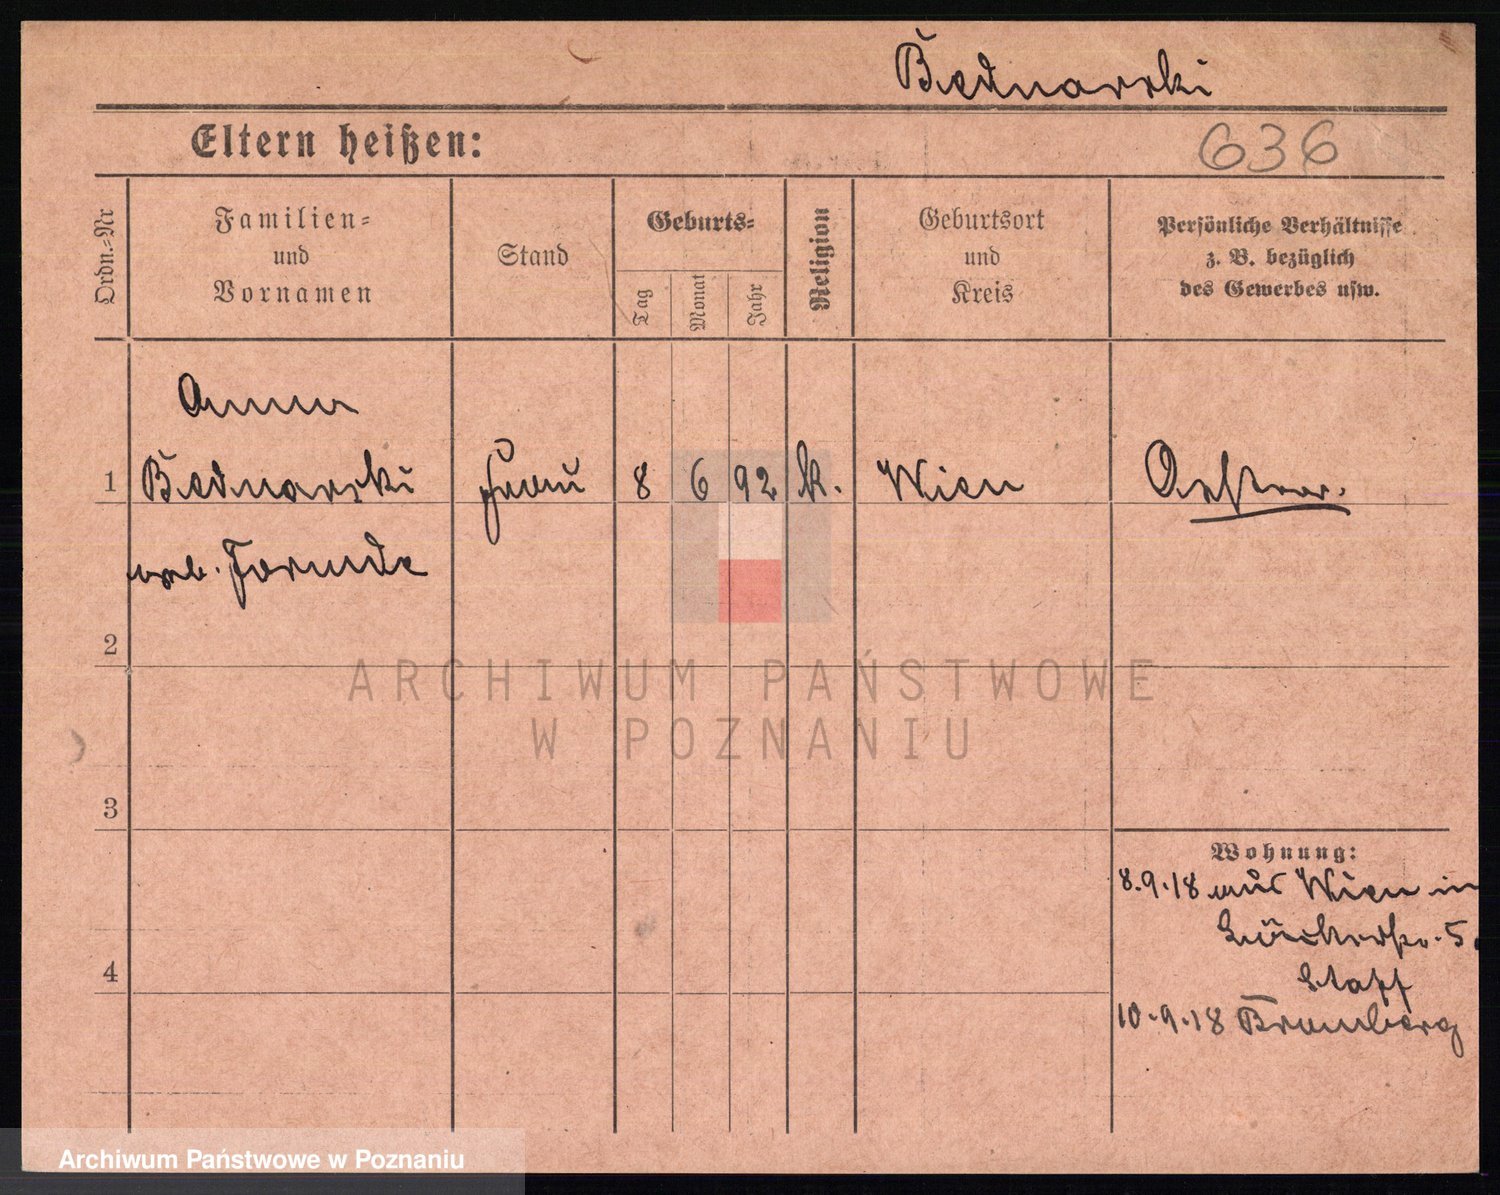 Bednarski
Eltern heißen:
636
Ordn.=Nr
Familien=
und
Vornamen
Stand
Geburts=
Tag
Monat
Jahr
Religion
Geburtsort
und
Kreis
Persönliche Verhältnisse
z. B. bezüglich
des Gewerbes usw.
Anna
1 Bednarski Frau 8 6 92 k. Wien Oestrr.
geb.
2
ARCHIWUM PAŃSTWOWE
W POZNANIU
3
Wohnung:
8.9.18 aus Wien in
5
4
10.9.18 Bromberg
Archiwum Państwowe w Poznaniu